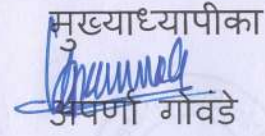 मुख्याध्यापीका
अपर्णा गोवंडे